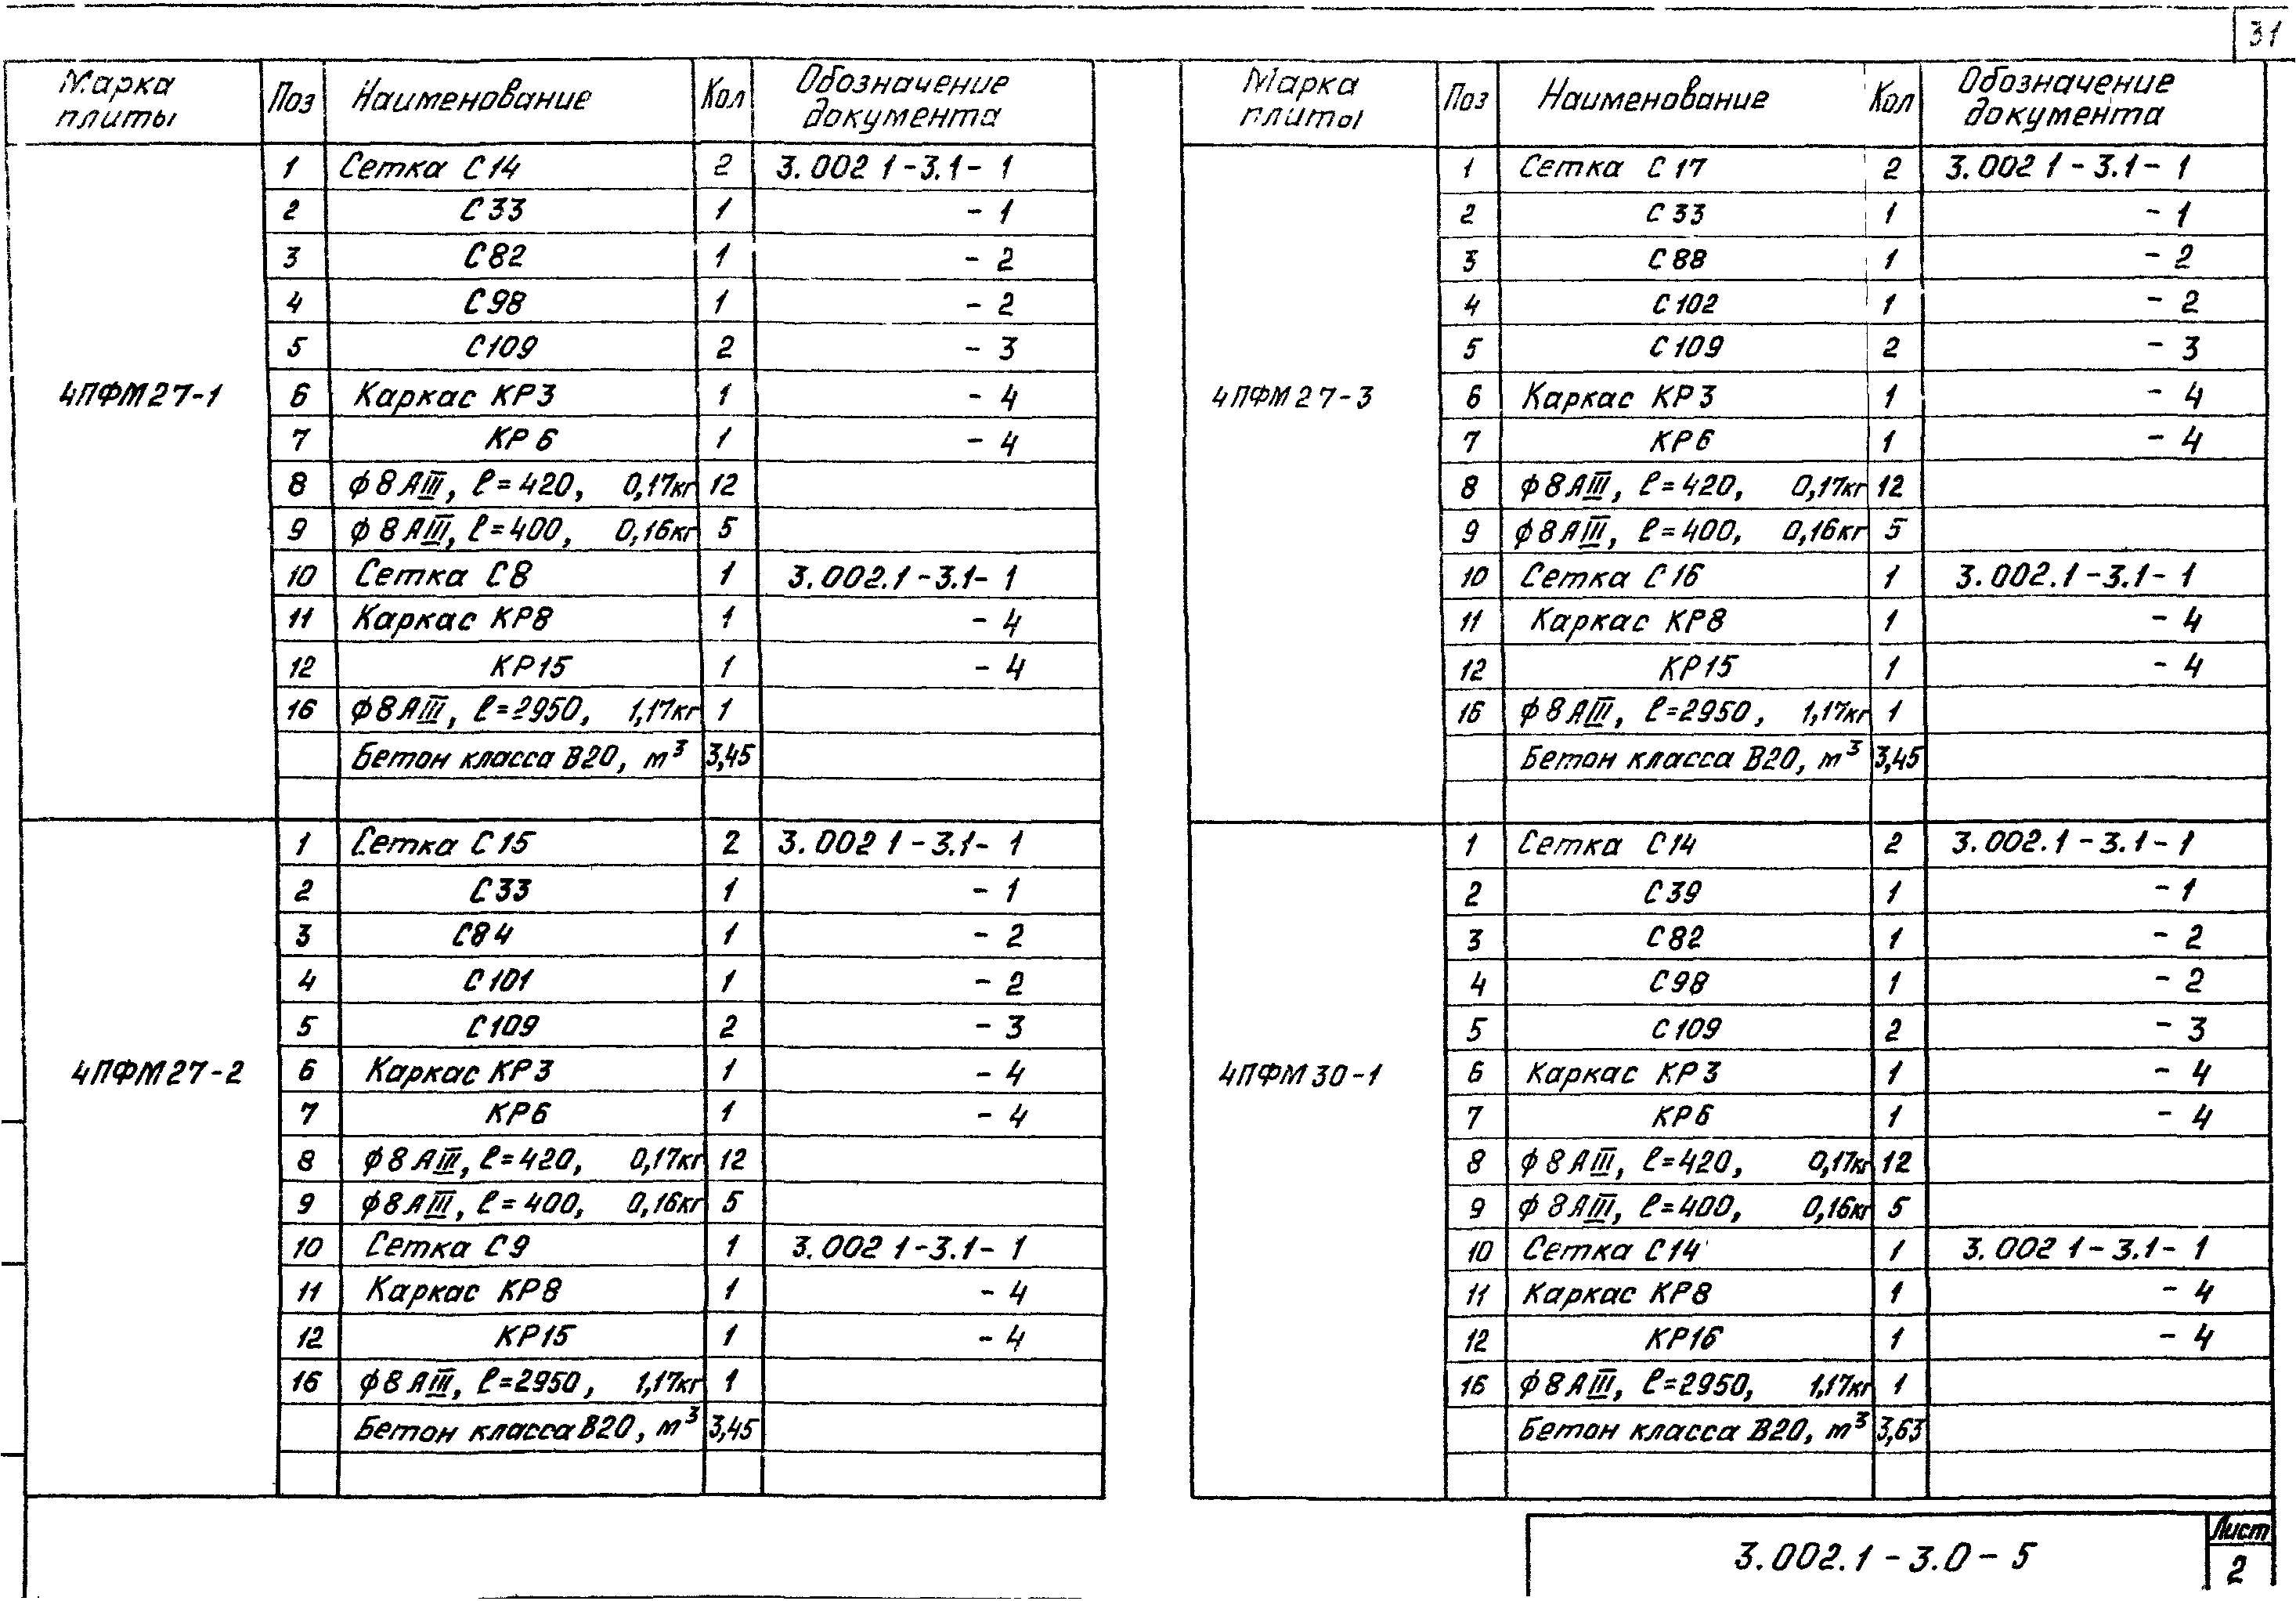 31
Марка плиты Поз Наименование Кол Обозначение документа
4ПФМ27-1
1 Сетка С14 2 3.002 1-3.1-1
2 С33 1 -1
3 С82 1 -2
4 С98 1 -2
5 С109 2 -3
6 Каркас КР3 1 -4
7 КР6 1 -4
8 ф8АIII, ℓ=420, 0,17кг 12
9 ф8АIII, ℓ=400, 0,16кг 5
10 Сетка С8 1 3.002.1-3.1-1
11 Каркас КР8 1 -4
12 КР15 1 -4
16 ф8АIII, ℓ=2950, 1,17кг 1
Бетон класса В20, м³ 3,45
4ПФМ27-2
1 Сетка С15 2 3.002 1-3.1-1
2 С33 1 -1
3 С84 1 -2
4 С101 1 -2
5 С109 2 -3
6 Каркас КР3 1 -4
7 КР6 1 -4
8 ф8АIII, ℓ=420, 0,17кг 12
9 ф8АIII, ℓ=400, 0,16кг 5
10 Сетка С9 1 3.002 1-3.1-1
11 Каркас КР8 1 -4
12 КР15 1 -4
16 ф8АIII, ℓ=2950, 1,17кг 1
Бетон класса В20, м³ 3,45
Марка плиты Поз Наименование Кол Обозначение документа
4ПФМ27-3
1 Сетка С17 2 3.002 1-3.1-1
2 С33 1 -1
3 С88 1 -2
4 С102 1 -2
5 С109 2 -3
6 Каркас КР3 1 -4
7 КР6 1 -4
8 ф8АIII, ℓ=420, 0,17кг 12
9 ф8АIII, ℓ=400, 0,16кг 5
10 Сетка С16 1 3.002.1-3.1-1
11 Каркас КР8 1 -4
12 КР15 1 -4
16 ф8АIII, ℓ=2950, 1,17кг 1
Бетон класса В20, м³ 3,45
4ПФМ30-1
1 Сетка С14 2 3.002.1-3.1-1
2 С39 1 -1
3 С82 1 -2
4 С98 1 -2
5 С109 2 -3
6 Каркас КР3 1 -4
7 КР6 1 -4
8 ф8АIII, ℓ=420, 0,17кг 12
9 ф8АIII, ℓ=400, 0,16кг 5
10 Сетка С14 1 3.002 1-3.1-1
11 Каркас КР8 1 -4
12 КР16 1 -4
16 ф8АIII, ℓ=2950, 1,17кг 1
Бетон класса В20, м³ 3,63
3.002.1-3.0-5
Лист
2